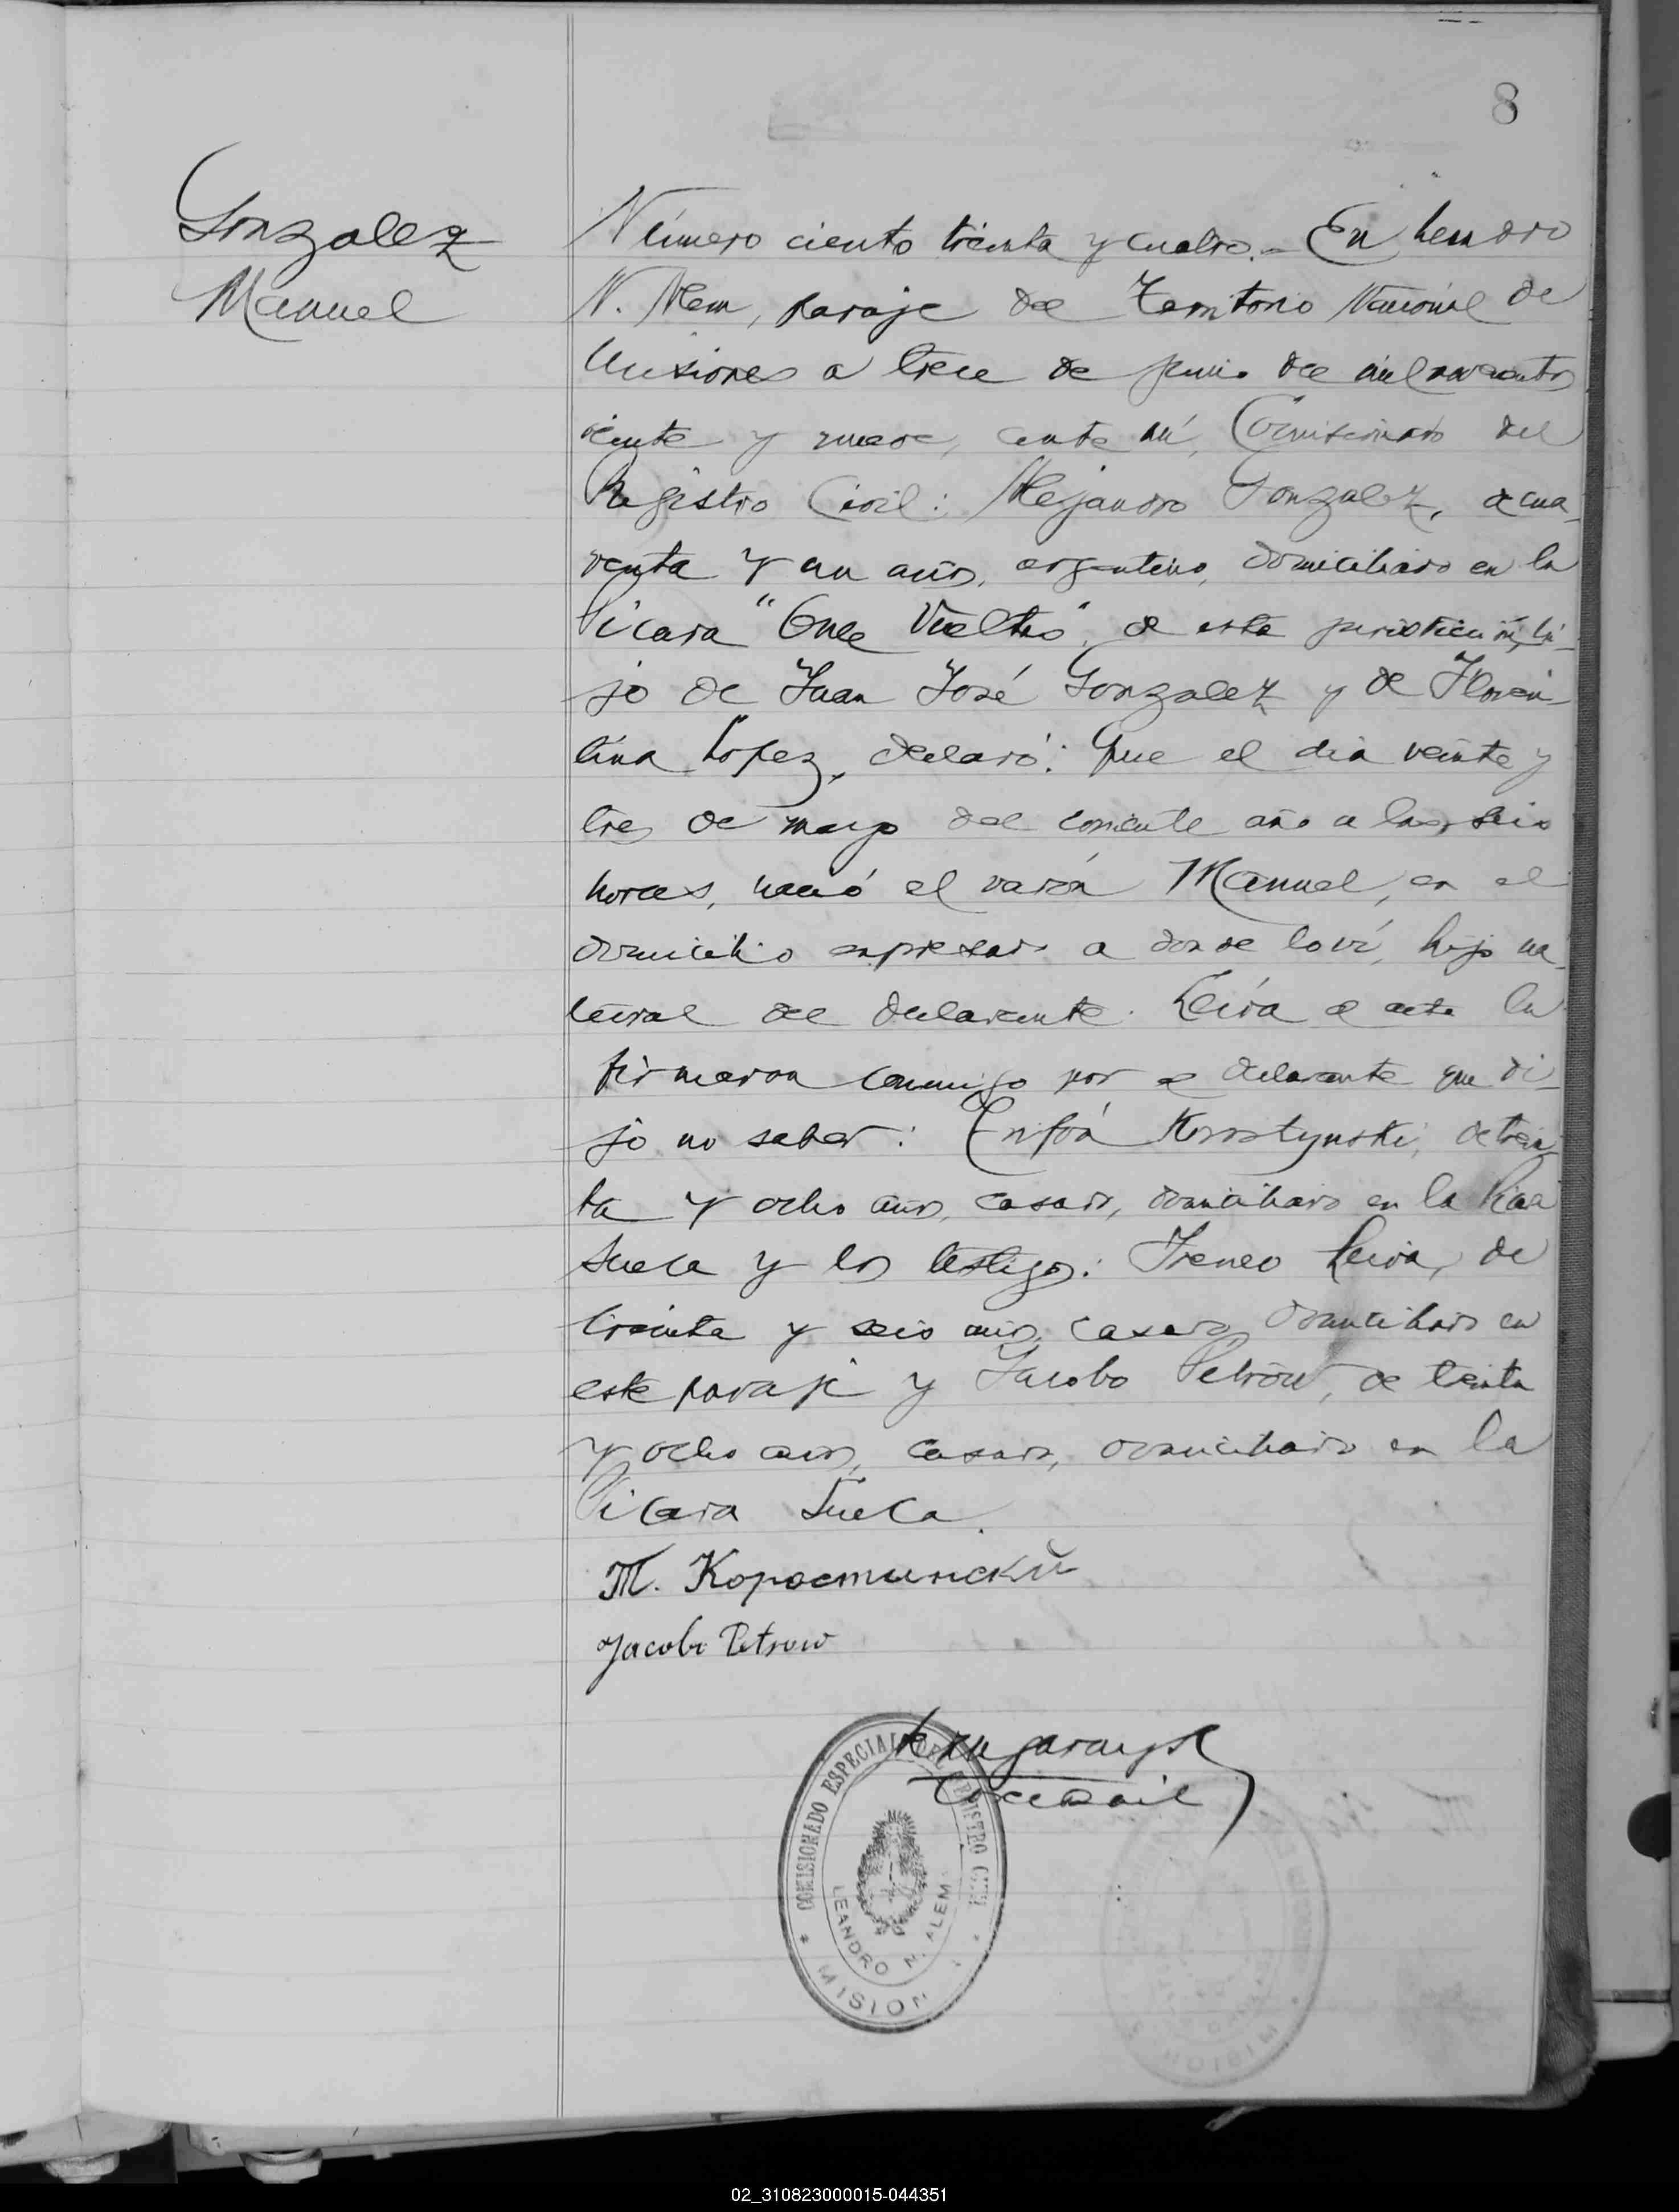 8
Gonzalez
Manuel
Número ciento treinta y cuatro.- En Leandro
N. Alem, paraje del Territorio Nacional de
Misiones a trece de junio de mil novecientos
veinte y nueve, ante mí, Comisionado del
Registro Civil: Alejandro Gonzalez, de cua-
renta y un años, argentino, domiciliado en la
Picada "Once Vueltas", de esta jurisdicción, hi-
jo de Juan José Gonzalez y de Floren-
tina Lopez, declaró: Que el día veinte y
tres de mayo del corriente año a las seis
horas, nació el varón Manuel, en el
domicilio expresado a donde lo ví, hijo na-
tural del declarante. Leída el acta la
firmaron conmigo por el declarante que di-
jo no saber: Trifón Korostynski, de trein-
ta y ocho años, casado, domiciliado en la Picada
Sueca y los testigos: Ireneo Leiva, de
treinta y seis años, casado, domiciliado en
este paraje y Jacobo Petrow, de treinta
y ocho años, casado, domiciliado en la
Picada Sueca.
Т. Коростинский
Jacobo Petrow
COMISIONADO ESPECIAL DEL REGISTRO CIVIL
LEANDRO N. ALEM
* MISION
02_310823000015-044351